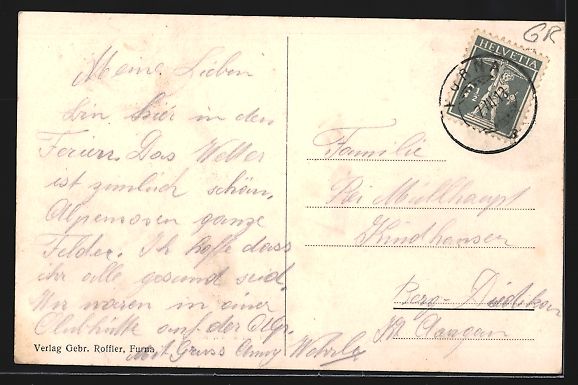 GR
HELVETIA
Meine Lieben
bin hier in den
Ferien. Das Wetter
ist zimlich schön,
Alpenrosen ganze
Felder. Ich hoffe dass
ihr alle gesund seid.
Wir waren in einer
Clubhütte auf der Alp.
mit Gruss Anny Wehrle
Verlag Gebr. Roffler, Furna
Familie
Bei Müllhaupt
Kindhausen
Berg-Dietikon
Kt Aargau